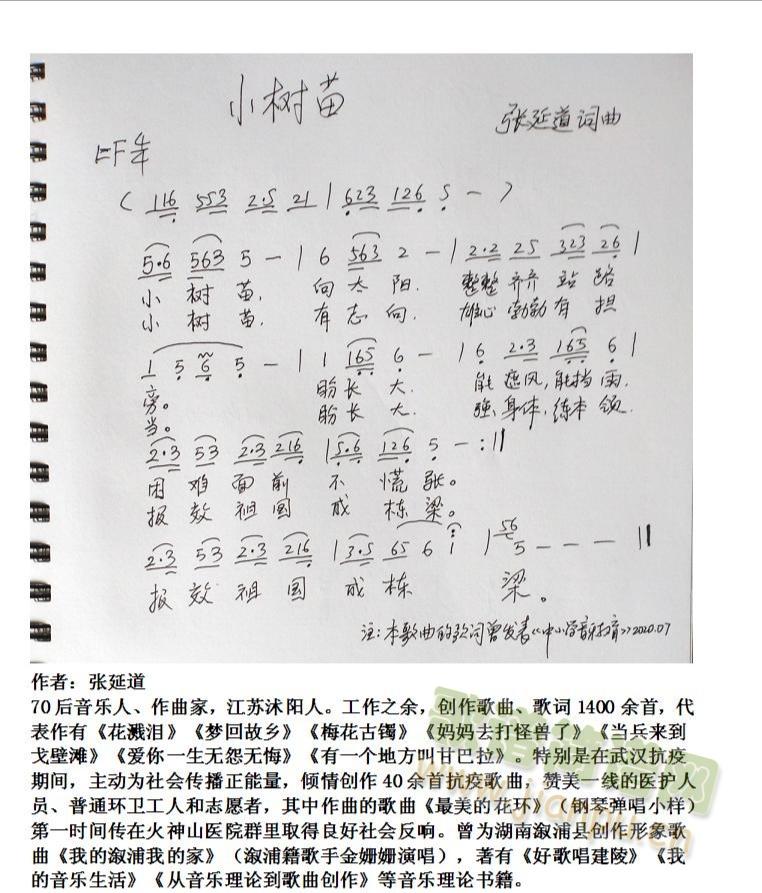 小树苗
张延道词曲
1=F 4/4
( 116 553 2·5 21 | 623 126 5 — )
5·6 563 5 — | 6 563 2 — | 2·2 25 323 26 |
小 树 苗, 向 太 阳. 整整 齐齐 站 路
小 树 苗, 有 志 向. 雄心 勃勃 有 担
1 5 6 5 — | 1 165 6 — | 6 2·3 165 6 |
旁。 盼 长 大. 能 遮风, 能挡 雨.
当。 盼 长 大. 强 身体, 练本 领.
2·3 53 2·3 216 | 5·6 126 5 — :||
困 难 面 前 不 慌 张。
报 效 祖 国 成 栋 梁。
2·3 53 2·3 216 | 3·5 65 6 1 | 56 5 — — — ||
报 效 祖 国 成 栋 梁。
注: 本歌曲的歌词曾发表《中小学音乐教育》2020.07
作者：张延道
70后音乐人、作曲家，江苏沭阳人。工作之余，创作歌曲、歌词1400余首，代
表作有《花溅泪》《梦回故乡》《梅花古镯》《妈妈去打怪兽了》《当兵来到
戈壁滩》《爱你一生无怨无悔》《有一个地方叫甘巴拉》。特别是在武汉抗疫
期间，主动为社会传播正能量，倾情创作40余首抗疫歌曲，赞美一线的医护人
员、普通环卫工人和志愿者，其中作曲的歌曲《最美的花环》（钢琴弹唱小样）
第一时间传在火神山医院群里取得良好社会反响。曾为湖南溆浦县创作形象歌
曲《我的溆浦我的家》（溆浦籍歌手金姗姗演唱），著有《好歌唱建陵》《我
的音乐生活》《从音乐理论到歌曲创作》等音乐理论书籍。
歌谱简谱网
www.jianpu.cn